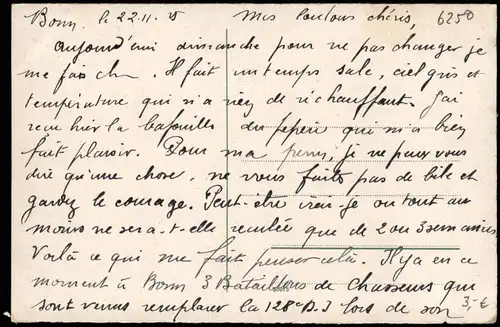 Bonn, le 22.11.25 Mes loulous chéris, 6250
Aujourd'hui dimanche pour ne pas changer je
me fais ch. Il fait un temps sale, ciel gris et
température qui n'a rien de réchauffant. J'ai
reçu hier la bafouille du pépère qui m'a bien
fait plaisir. Pour ma perm, je ne peux vous
dire qu'une chose, ne vous faites pas de bile et
gardez le courage. Peut-être irai-je ou tout au
moins ne sera-t-elle reculée que de 2 ou 3 semaines
Voilà ce qui me fait penser cela. Il y a en ce
moment à Bonn 3 Bataillons de Chasseurs qui
sont venus remplacer la 128e D.I lors de son
3,-€